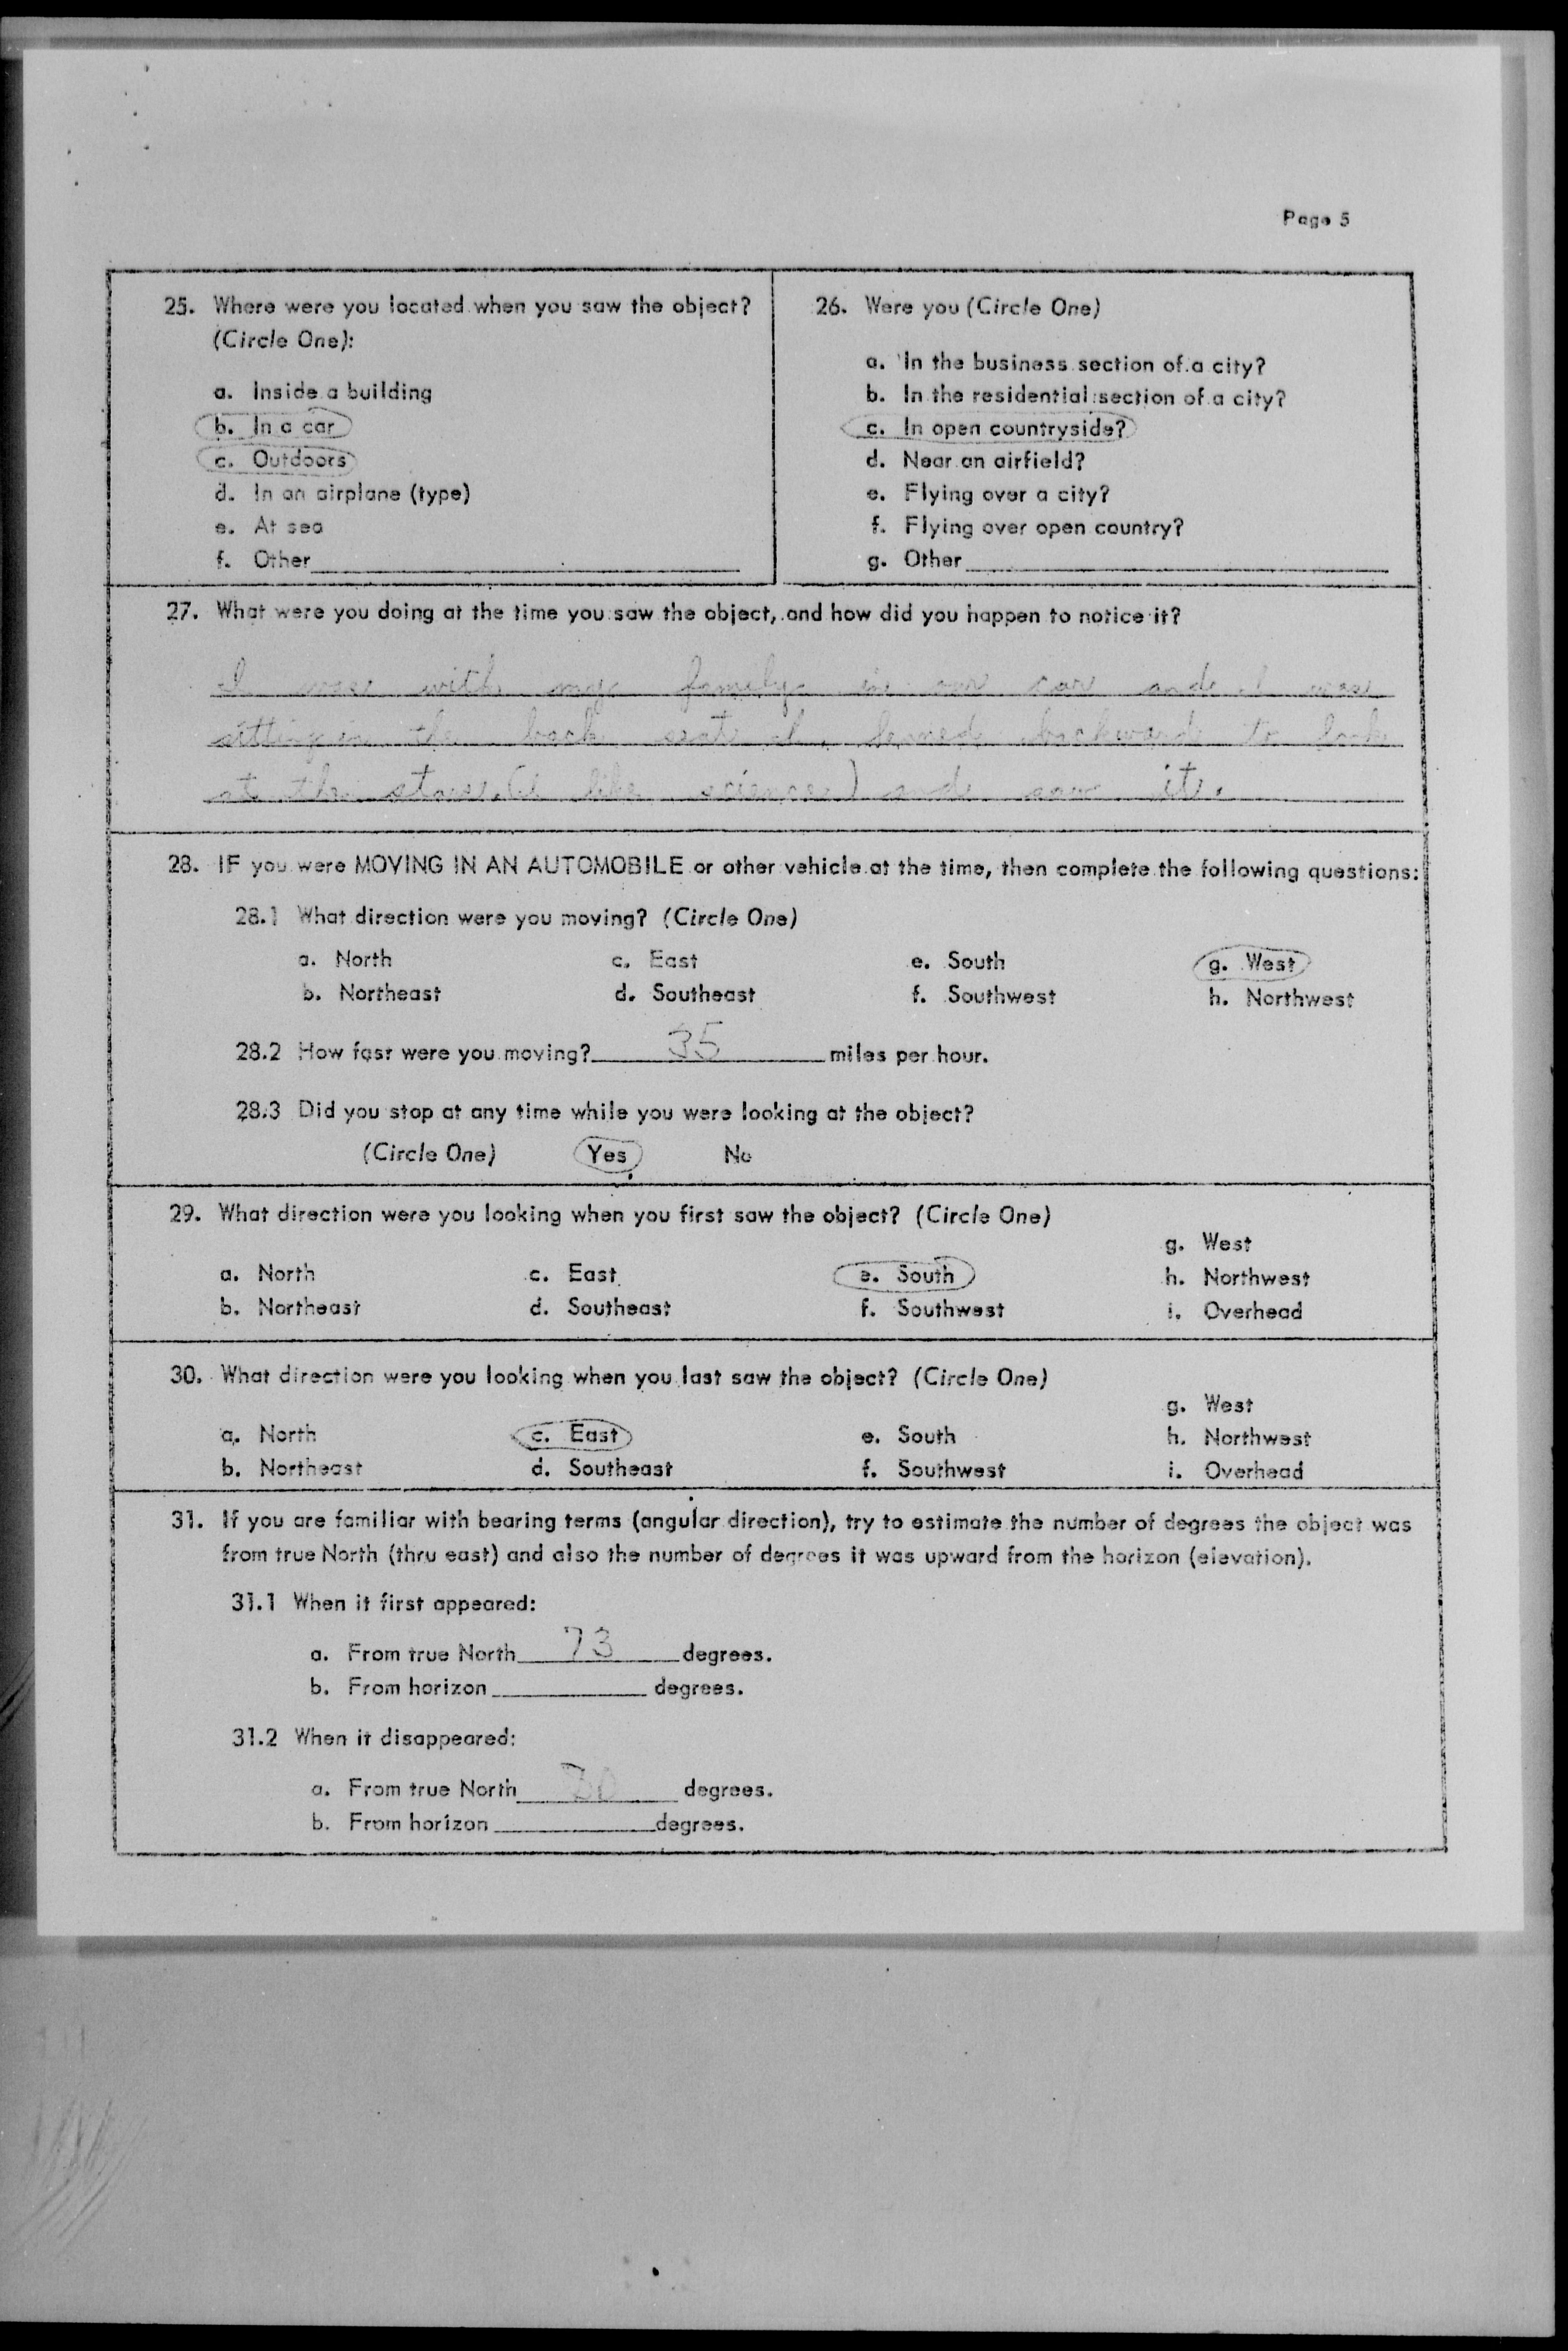 Page 5
25. Where were you located when you saw the object?
(Circle One):
a. Inside a building
b. In a car
c. Outdoors
d. In an airplane (type)
e. At sea
f. Other
26. Were you (Circle One)
a. In the business section of a city?
b. In the residential section of a city?
c. In open countryside?
d. Near an airfield?
e. Flying over a city?
f. Flying over open country?
g. Other
27. What were you doing at the time you saw the object, and how did you happen to notice it?
I was with my family in our car and I was
sitting in the back seat I leaned backwards to look
at the stars. (I like science) and saw it.
28. IF you were MOVING IN AN AUTOMOBILE or other vehicle at the time, then complete the following questions:
28.1 What direction were you moving? (Circle One)
a. North c. East e. South g. West
b. Northeast d. Southeast f. Southwest h. Northwest
28.2 How fast were you moving? 35 miles per hour.
28.3 Did you stop at any time while you were looking at the object?
(Circle One) Yes No
29. What direction were you looking when you first saw the object? (Circle One)
g. West
a. North c. East e. South h. Northwest
b. Northeast d. Southeast f. Southwest i. Overhead
30. What direction were you looking when you last saw the object? (Circle One)
g. West
a. North c. East e. South h. Northwest
b. Northeast d. Southeast f. Southwest i. Overhead
31. If you are familiar with bearing terms (angular direction), try to estimate the number of degrees the object was
from true North (thru east) and also the number of degrees it was upward from the horizon (elevation).
31.1 When it first appeared:
a. From true North 73 degrees.
b. From horizon degrees.
31.2 When it disappeared:
a. From true North degrees.
b. From horizon degrees.